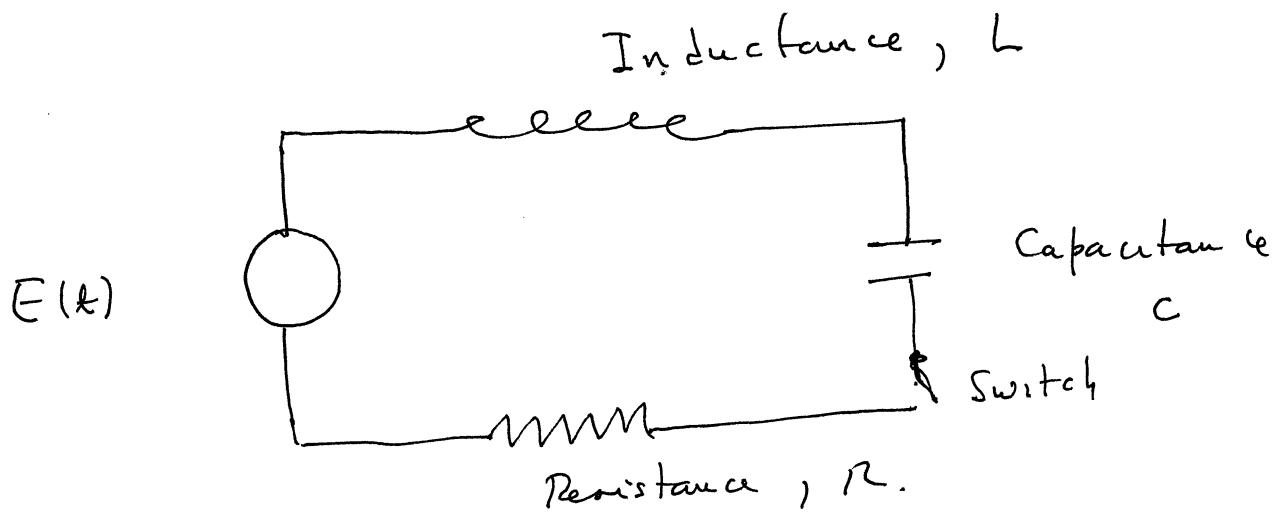 Inductance, L
E(t)
Capacitance
C
Switch
Resistance, R.